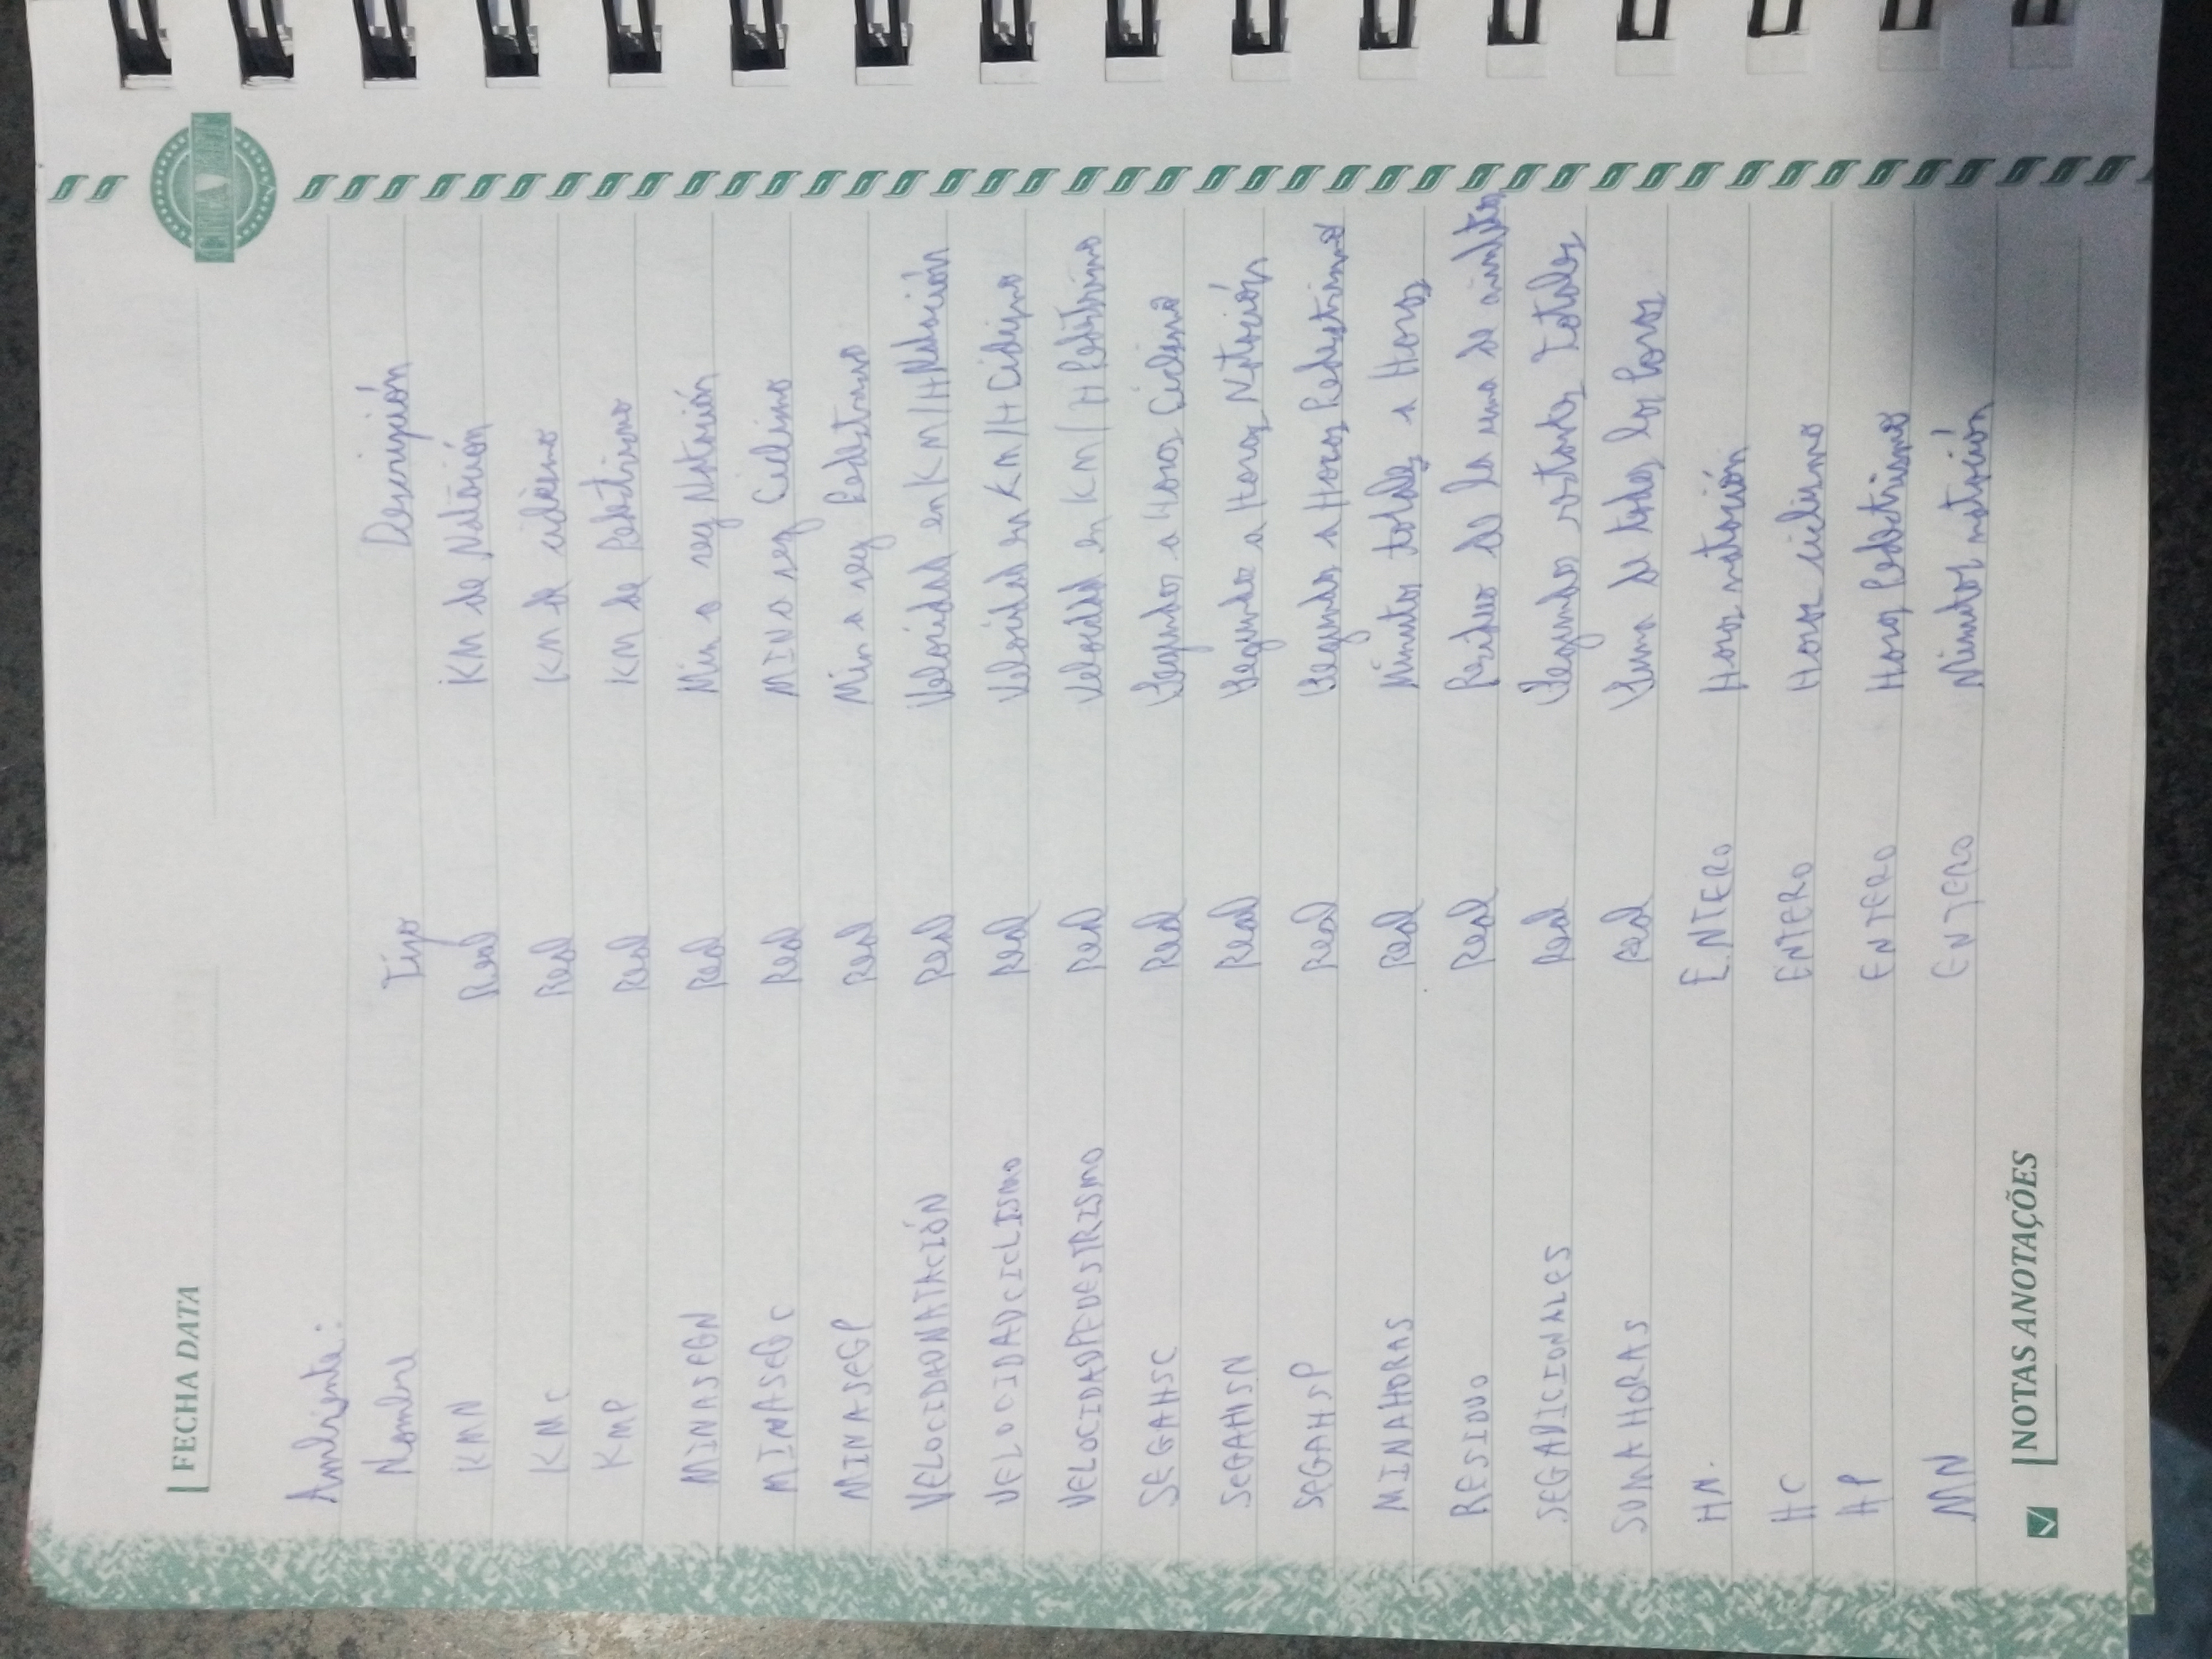 FECHA DATA
Ambiente:
Nombre Tipo Descripción
KMN Real KM de Natación
KMC Real KM de ciclismo
KMP Real KM de Pedestrismo
MINASEGN Real Min a seg Natación
MINASEGC Real MIN a seg Ciclismo
MINASEGP Real Min a seg Pedestrismo
VELOCIDADNATACIÓN Real Velocidad en KM/H Natación
VELOCIDADCICLISMO Real Velocidad en KM/H Ciclismo
VELOCIDADPEDESTRISMO Real Velocidad en KM/H Pedestrismo
SEGAHSC Real Segundos a Horas Ciclismo
SEGAHSN Real Segundos a Horas Natación
SEGAHSP Real Segundos a Horas Pedestrismo
MINAHORAS Real Minutos totales a Horas
RESIDUO Real Residuo de la suma de minutos
SEGADICIONALES Real Segundos restantes Totales
SUMAHORAS Real Suma de todas las horas
HN. ENTERO Horas natación
HC ENTERO Horas ciclismo
HP ENTERO Horas Pedestrismo
MN ENTERO Minutos natación
NOTAS ANOTAÇÕES